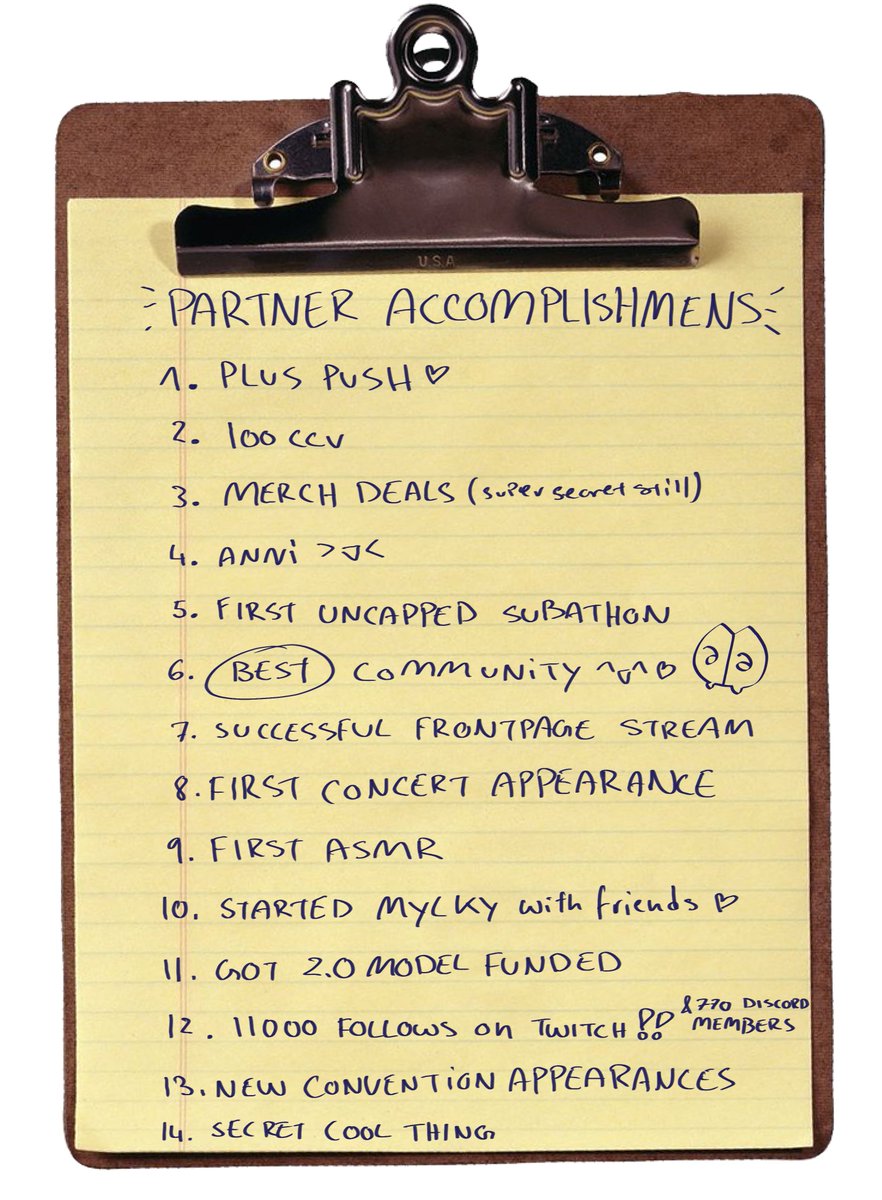 U.S.A
PARTNER ACCOMPLISHMENS
1. PLUS PUSH ♡
2. 100 CCV
3. MERCH DEALS (super secret still)
4. ANNi >v<
5. FIRST UNCAPPED SUBATHON
6. BEST COMMUNITY ^v^ ♡
7. SUCCESSFUL FRONTPAGE STREAM
8. FIRST CONCERT APPEARANCE
9. FIRST ASMR
10. STARTED MYLKY with friends ♡
11. GOT 2.0 MODEL FUNDED
12. 11000 FOLLOWS on TWITCH !! & 770 DISCORD MEMBERS
13. NEW CONVENTION APPEARANCES
14. SECRET COOL THING